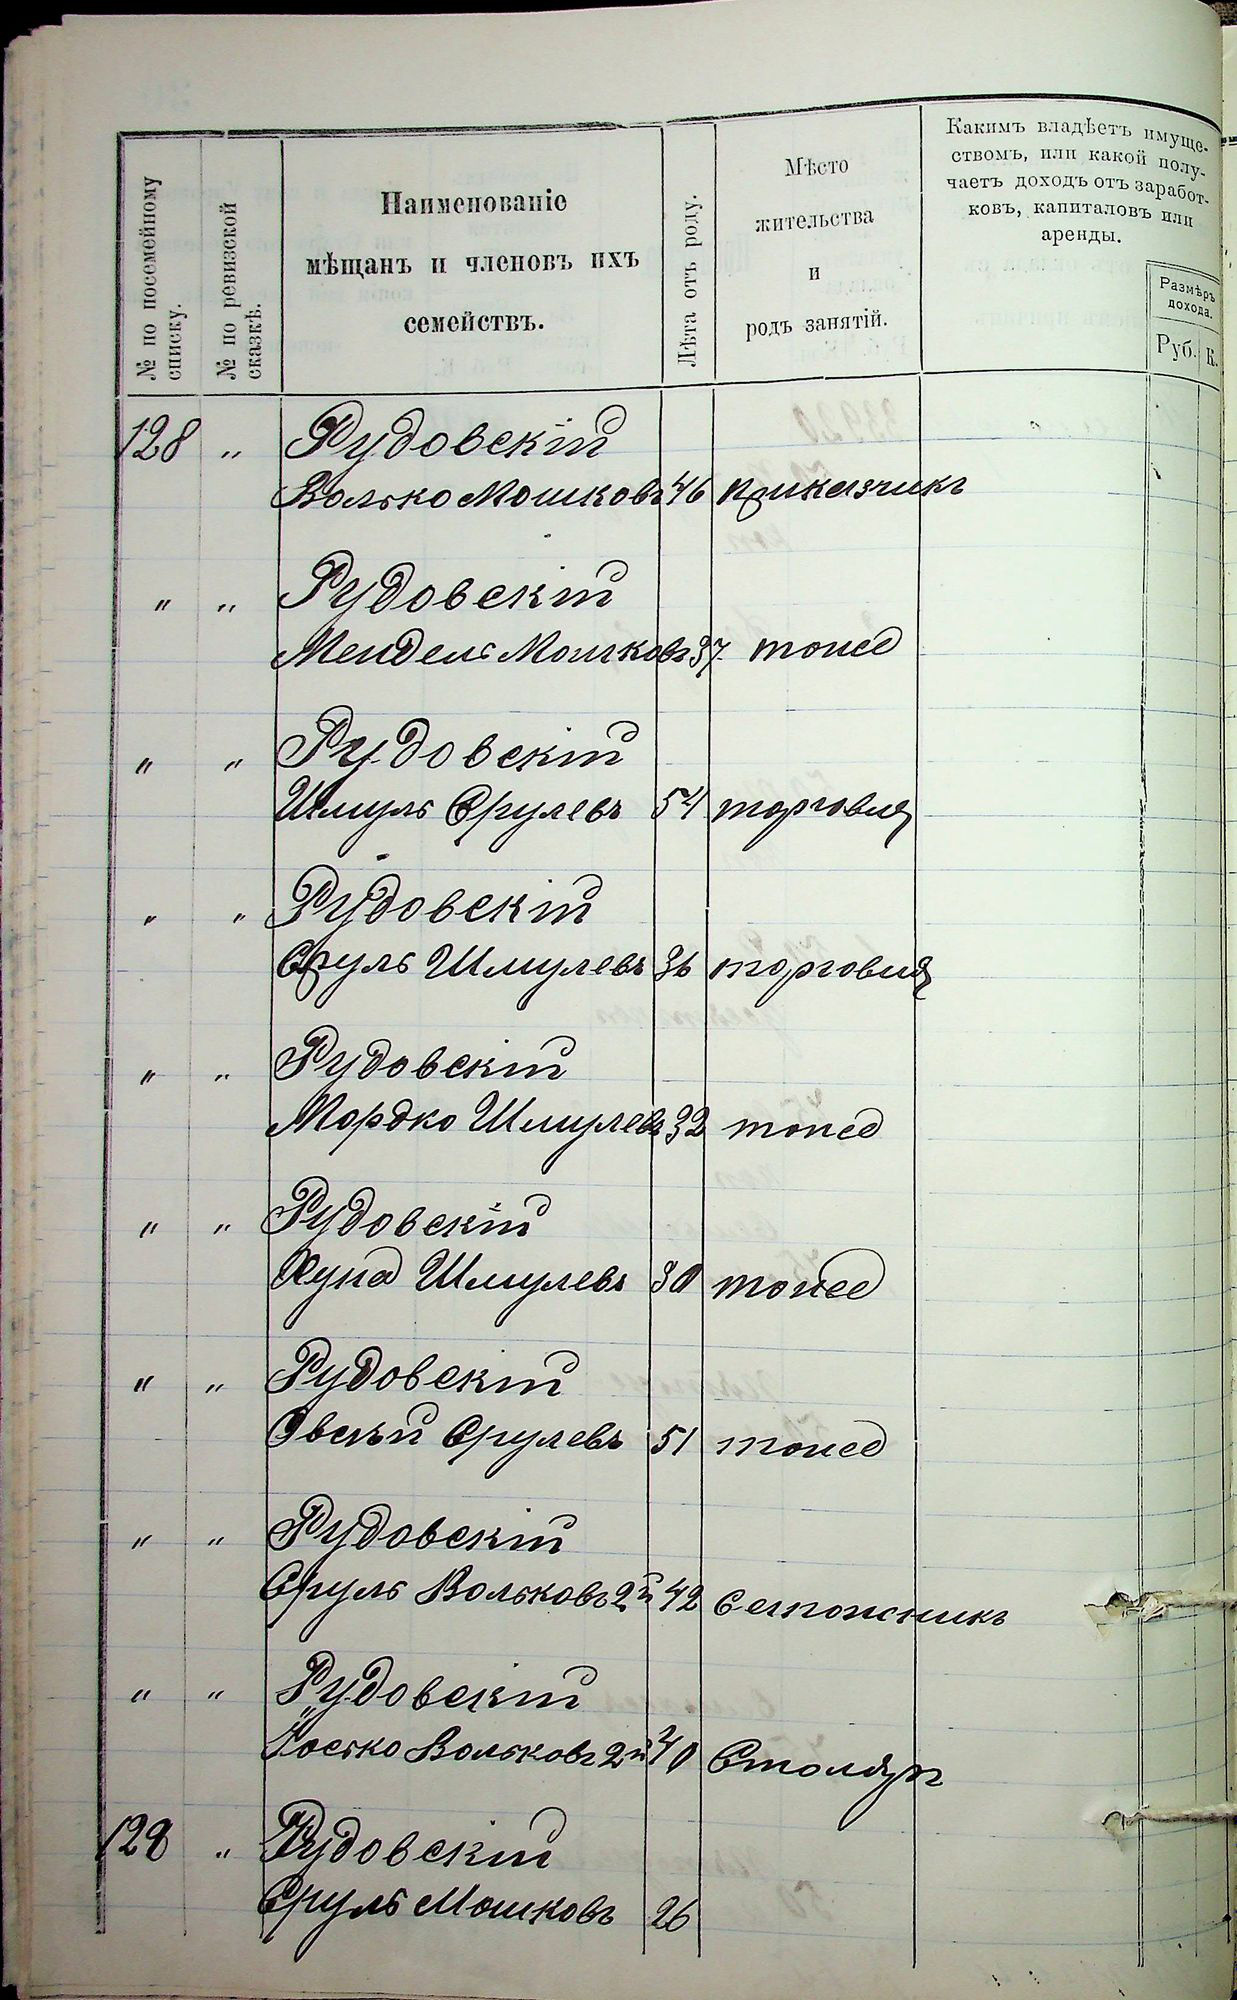 № по посемейному списку.
№ по ревизской сказкѣ.
Наименованіе
мѣщанъ и членовъ ихъ
семействъ.
Лѣта отъ роду.
Мѣсто
жительства
и
родъ занятій.
Какимъ владѣетъ имуще-
ствомъ, или какой полу-
чаетъ доходъ отъ заработ-
ковъ, капиталовъ или
аренды.
Размѣръ
дохода.
Руб. К.
128 " Рудовскій
Волько Мошковъ 46 приказчикъ
" " Рудовскій
Мендель Мошковъ 37 тоже
" " Рудовскій
Шмуль Срулевъ 54 торговля
" " Рудовскій
Сруль Шмулевъ 36 торговля
" " Рудовскій
Мордко Шмулевъ 32 тоже
" " Рудовскій
Хуна Шмулевъ 30 тоже
" " Рудовскій
Овсѣй Срулевъ 51 тоже
" " Рудовскій
Сруль Вольковъ 2й 42 Сапожникъ
" " Рудовскій
Іосько Вольковъ 2й 40 Столяръ
128 " Рудовскій
Сруль Мошковъ 26